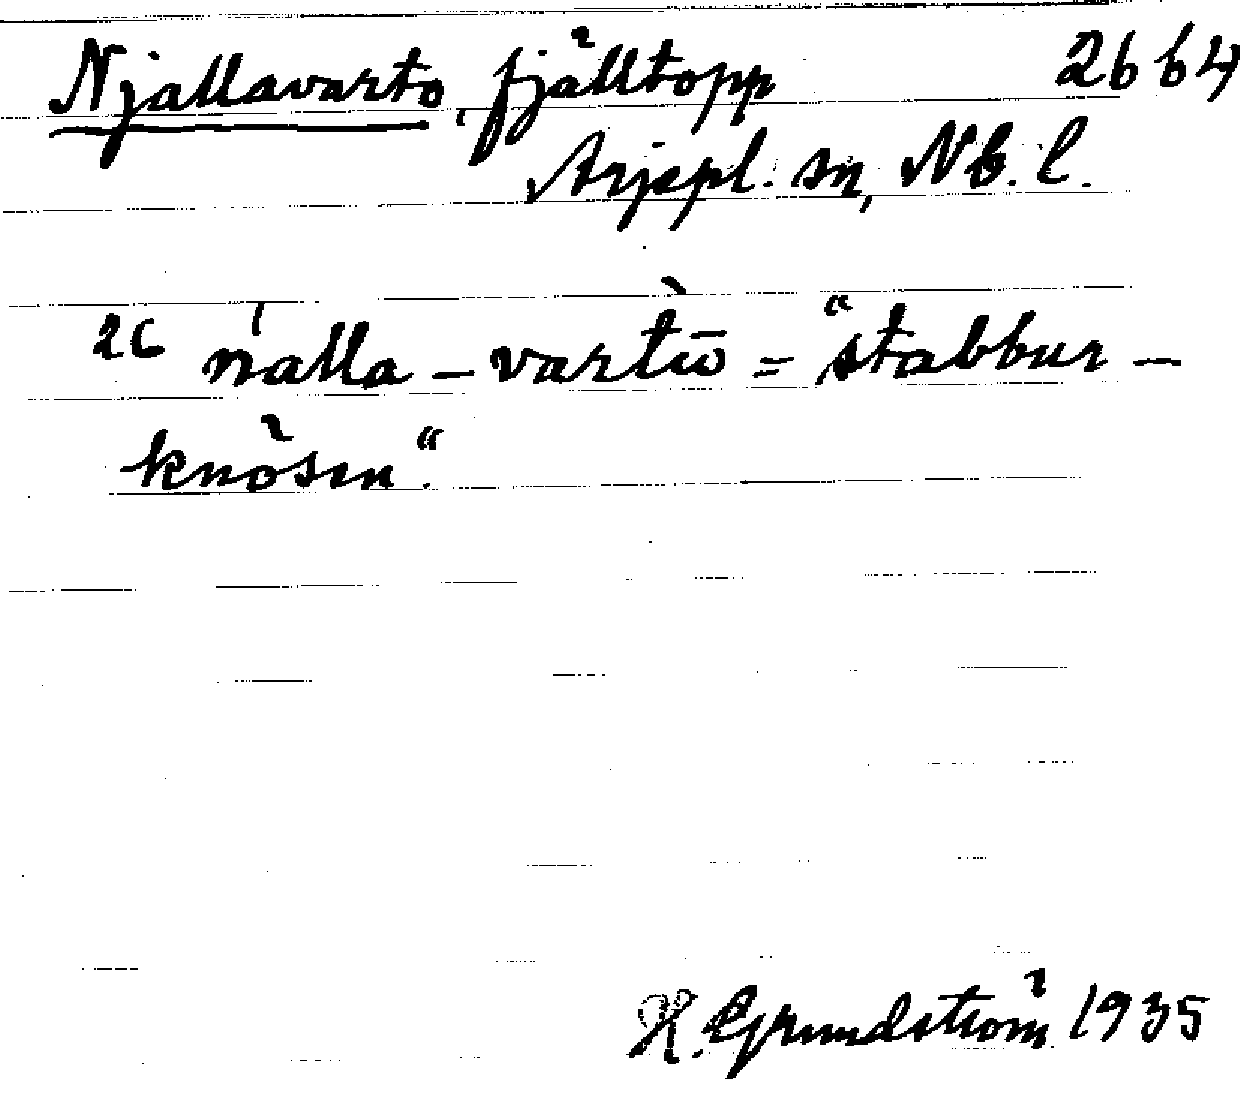 Njallavarto, fjälltopp 26 64
Arjepl. sn, Nb. l.
26 ńalla-vartū̀ = "stabbur-
knösen".
H. Grundström 1935